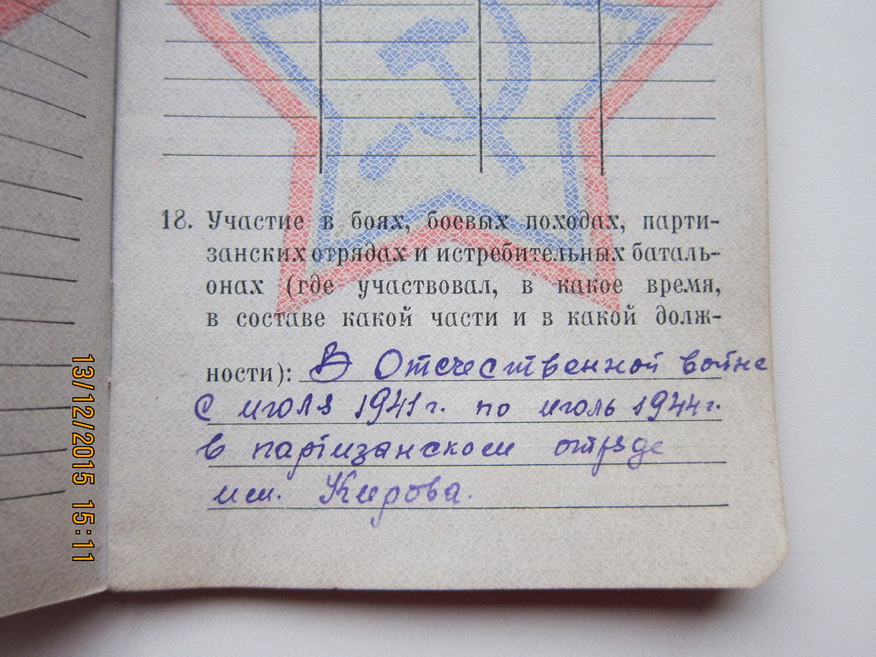 18. Участие в боях, боевых походах, парти-
занских отрядах и истребительных баталь-
онах (где участвовал, в какое время,
в составе какой части и в какой долж-
ности): В Отечественной войне
с июля 1941 г. по июль 1944 г.
в партизанском отряде
им. Кирова.
13/12/2015 15:11